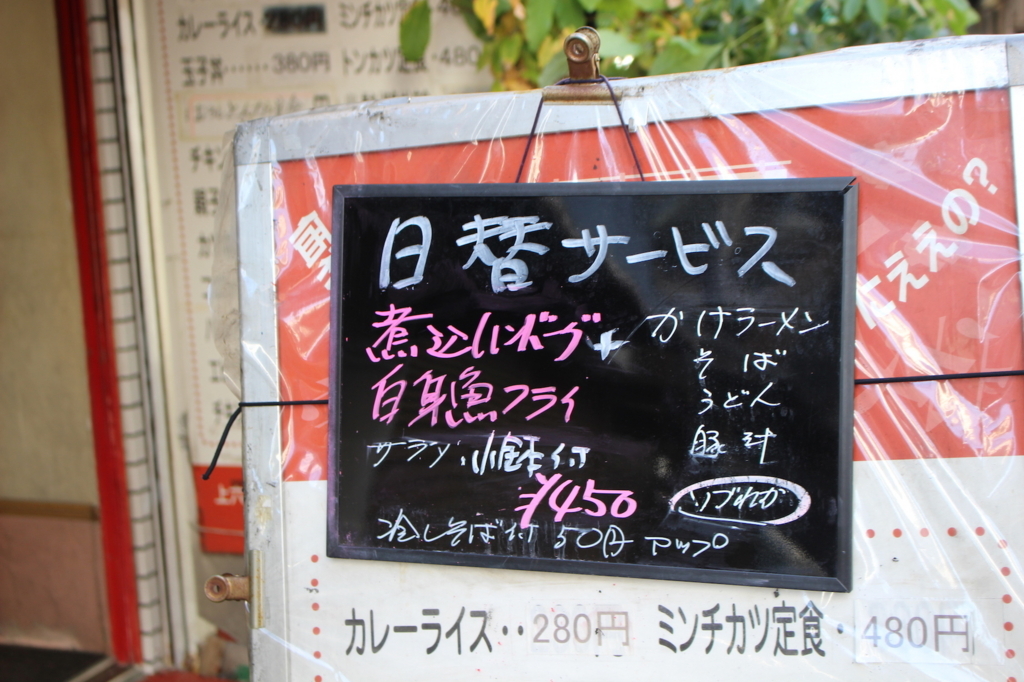 カレーライス 280円 ミンチカツ
玉子丼‥‥‥380円 トンカツ定食・480
チキン
親子
日替サービス
煮込ハンバーグ+
白身魚フライ
サラダ.小鉢付
¥450
かけラーメン
そば
うどん
豚汁
いづれか
冷しそば付 50円 アップ
にええの?
カレーライス‥280円 ミンチカツ定食・480円